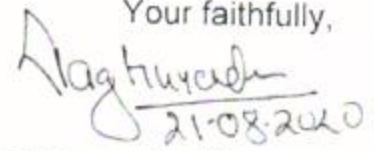 Your faithfully,
21-08-2020